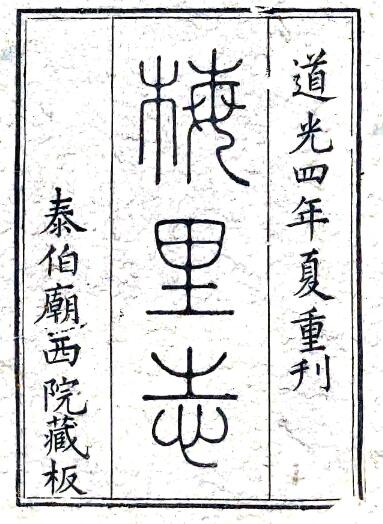 道光四年夏重刊
梅里志
泰伯廟西院藏板